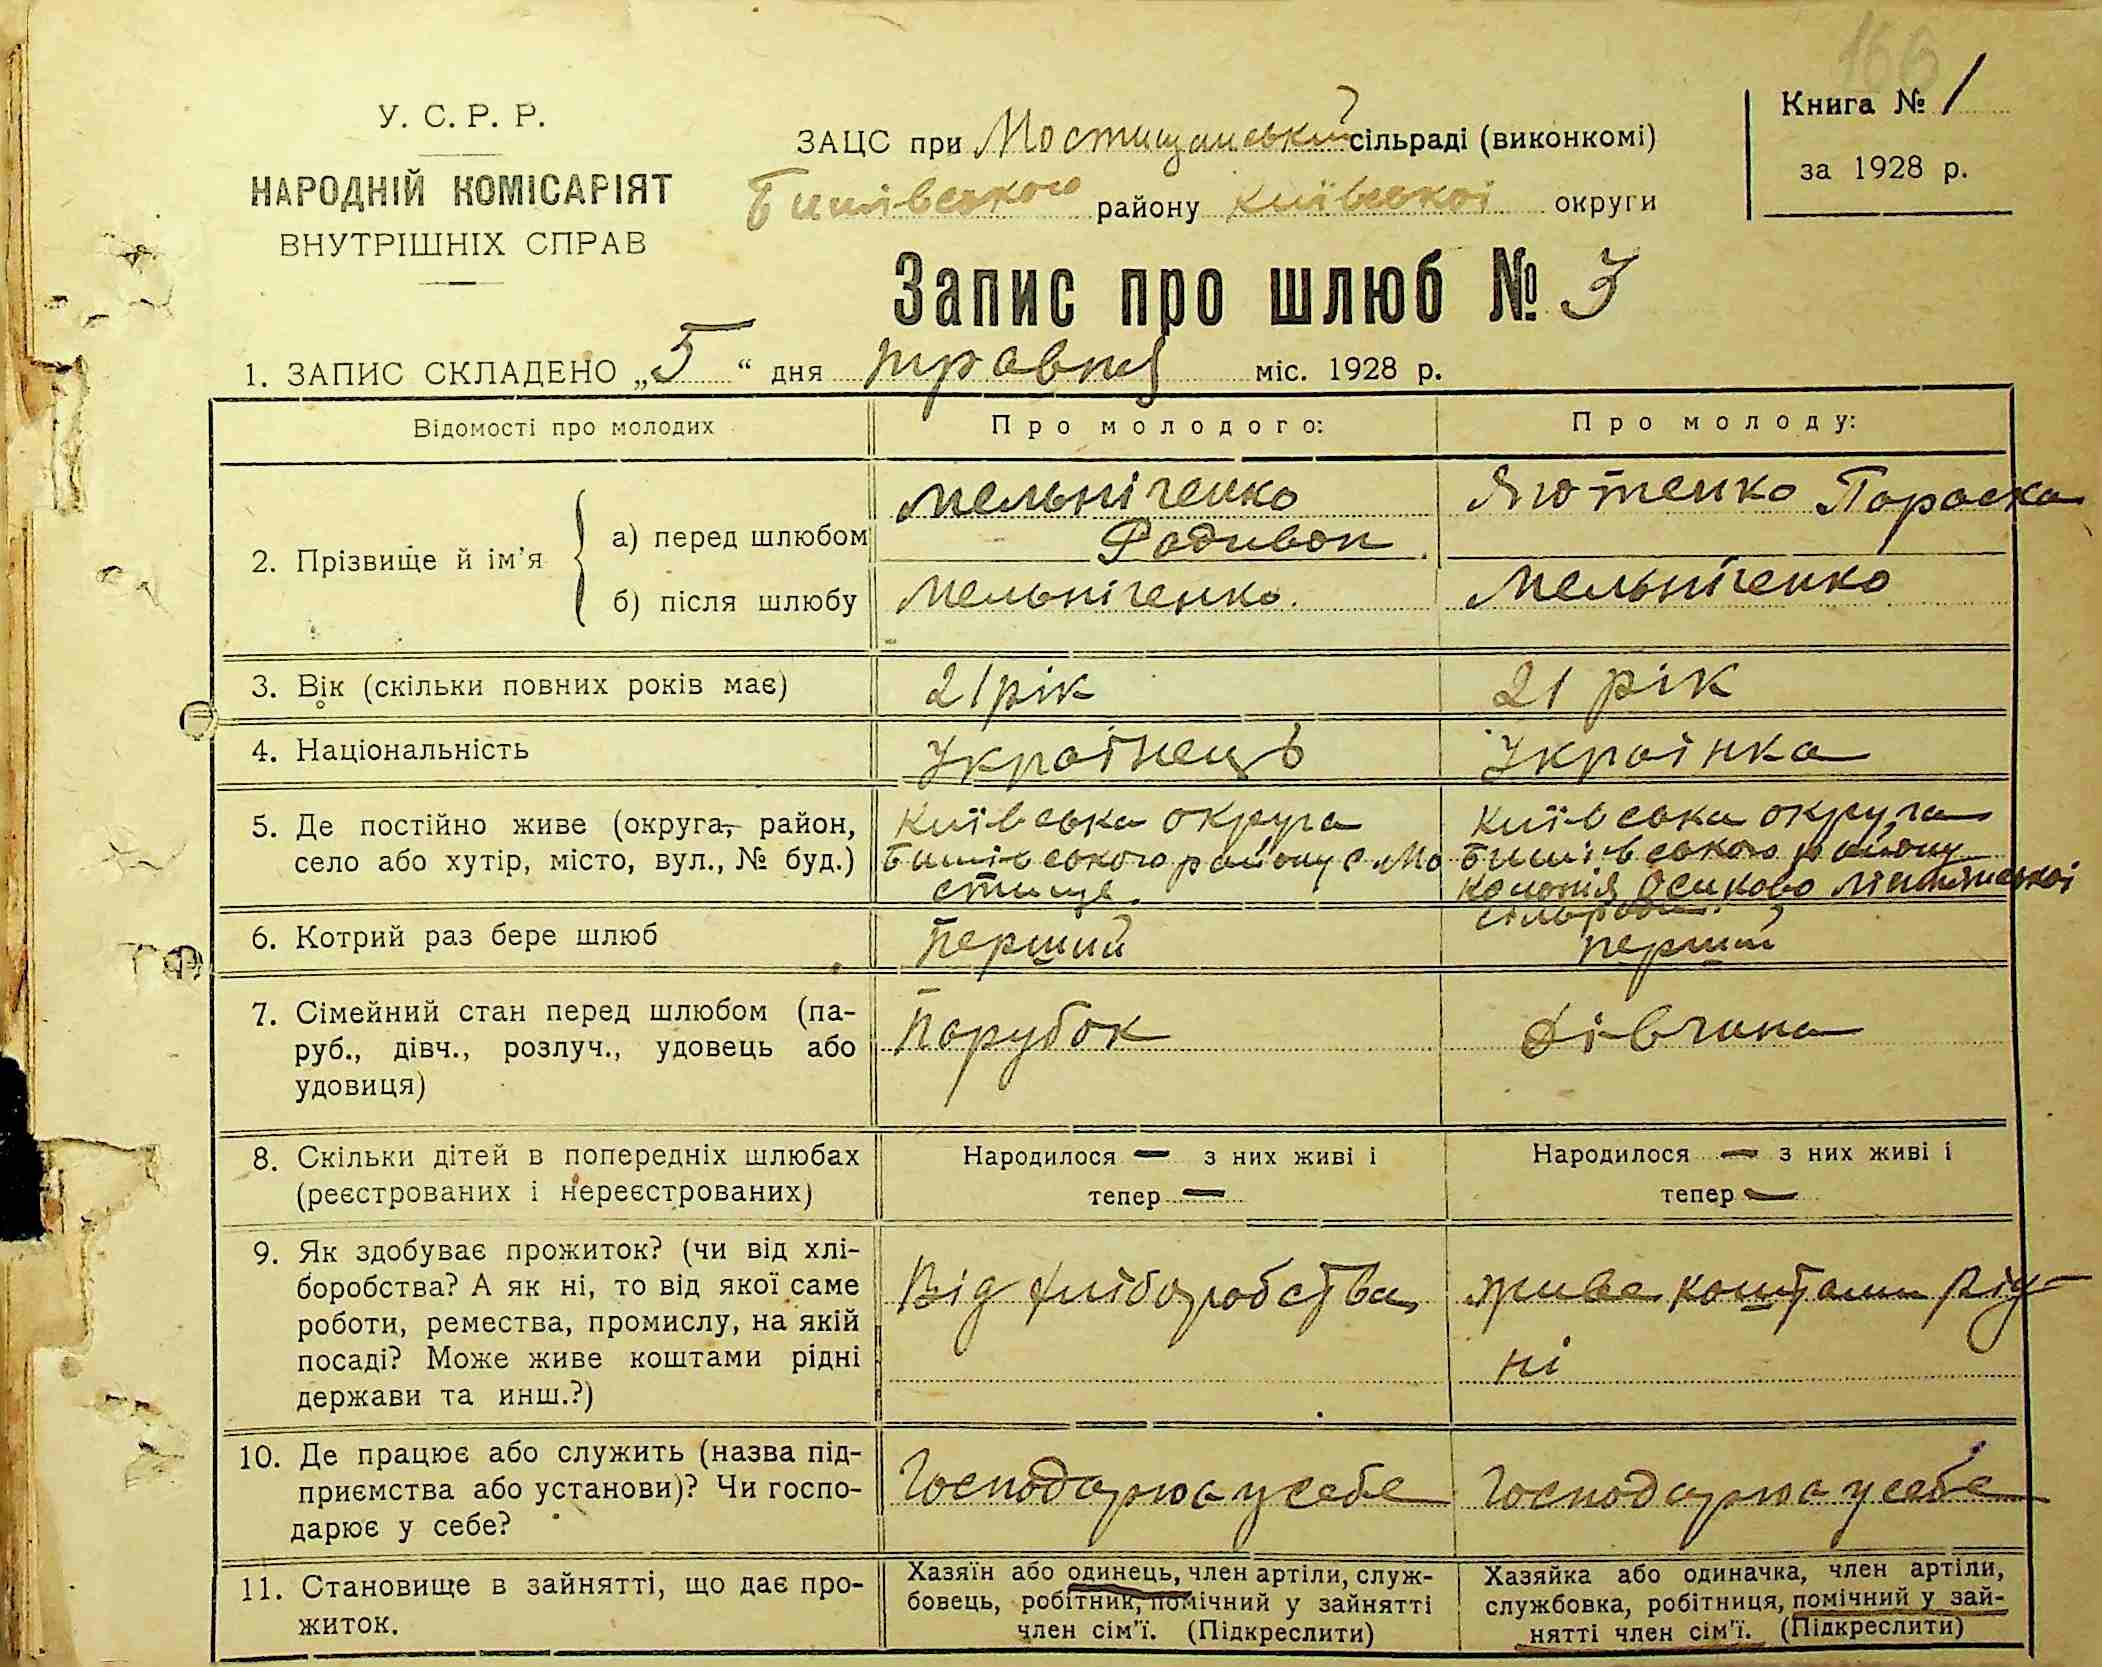 166
У. С. Р. Р.
НАРОДНІЙ КОМІСАРІЯТ
ВНУТРІШНІХ СПРАВ
ЗАЦС при Мостищанській сільраді (виконкомі)
Бишівського району Київської округи
Книга № 1
за 1928 р.
Запис про шлюб № 3
1. ЗАПИС СКЛАДЕНО „5“ дня травня міс. 1928 р.
Відомості про молодих
Про молодого:
Про молоду:
2. Прізвище й ім’я
а) перед шлюбом
Мельніченко
Родивон
Параска
б) після шлюбу
Мельніченко
Мельніченко
3. Вік (скільки повних років має)
21 рік
21 рік
4. Національність
Украінець
Украінка
5. Де постійно живе (округа, район,
село або хутір, місто, вул., № буд.)
Київська округа
Бишівського району с. Мо
стище.
Київська округа
Бишівського району
колонія Осиково
сільради.
6. Котрий раз бере шлюб
Перший
перший
7. Сімейний стан перед шлюбом (па-
руб., дівч., розлуч., удовець або
удовиця)
Парубок
Дівчина
8. Скільки дітей в попередніх шлюбах
(реєстрованих і нереєстрованих)
Народилося — з них живі і
тепер —
Народилося — з них живі і
тепер —
9. Як здобуває прожиток? (чи від хлі-
боробства? А як ні, то від якої саме
роботи, ремества, промислу, на якій
посаді? Може живе коштами рідні
держави та инш.?)
Від хліборобства
живе коштами рід-
ні
10. Де працює або служить (назва під-
приємства або установи)? Чи госпо-
дарює у себе?
Господарює у себе
Господарює у себе
11. Становище в зайнятті, що дає про-
житок.
Хазяїн або одинець, член артіли, служ-
бовець, робітник, помічний у зайнятті
член сім’ї. (Підкреслити)
Хазяйка або одиначка, член артіли,
службовка, робітниця, помічний у зай-
нятті член сім’ї. (Підкреслити)